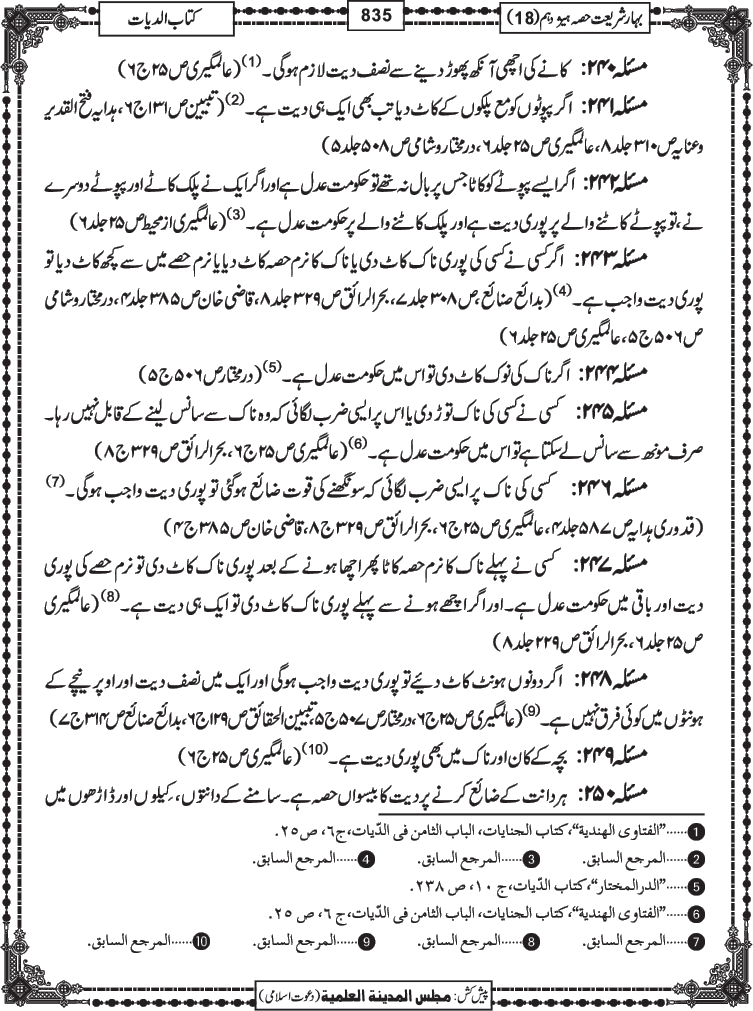 بہارِ شریعت حصہ ہیژدہم (18)
835
کتاب الدیات
مسئلہ ۲۴۰: کانے کی اچھی آنکھ پھوڑ دینے سے نصف دیت لازم ہوگی۔(1) (عالمگیری ص ۲۵ ج ۶)
مسئلہ ۲۴۱: اگر پپوٹوں کو مع پلکوں کے کاٹ دیا تب بھی ایک ہی دیت ہے۔(2) (تبیین ص ۱۳۱ ج ۶، ہدایہ فتح القدیر
وعنایہ ص ۳۱۰ جلد ۸، عالمگیری ص ۲۵ جلد ۶، درمختار و شامی ص ۵۰۸ جلد ۵)
مسئلہ ۲۴۲: اگر ایسے پپوٹے کو کاٹا جس پر بال نہ تھے تو حکومت عدل ہے اور اگر ایک نے پلک کاٹے اور پپوٹے دوسرے
نے، تو پپوٹے کاٹنے والے پر پوری دیت ہے اور پلک کاٹنے والے پر حکومت عدل ہے۔(3) (عالمگیری از محیط ص ۲۵ جلد ۶)
مسئلہ ۲۴۳: اگر کسی نے کسی کی پوری ناک کاٹ دی یا ناک کا نرم حصہ کاٹ دیا یا نرم حصے میں سے کچھ کاٹ دیا تو
پوری دیت واجب ہے۔(4) (بدائع صنائع، ص ۳۰۸ جلد ۷، بحر الرائق ص ۳۲۹ جلد ۸، قاضی خان ص ۳۸۵ جلد ۴، درمختار و شامی
ص ۵۰۶ ج ۵، عالمگیری ص ۲۵ جلد ۶)
مسئلہ ۲۴۴: اگر ناک کی نوک کاٹ دی تو اس میں حکومت عدل ہے۔(5) (درمختار ص ۵۰۶ ج ۵)
مسئلہ ۲۴۵: کسی نے کسی کی ناک توڑ دی یا اس پر ایسی ضرب لگائی کہ وہ ناک سے سانس لینے کے قابل نہیں رہا۔
صرف مونھ سے سانس لے سکتا ہے تو اس میں حکومت عدل ہے۔(6) (عالمگیری ص ۲۵ ج ۶، بحر الرائق ص ۳۲۹ ج ۸)
مسئلہ ۲۴۶: کسی کی ناک پر ایسی ضرب لگائی کہ سونگھنے کی قوت ضائع ہوگئی تو پوری دیت واجب ہوگی۔(7)
(قدوری ہدایہ ص ۵۸۷ جلد ۴، عالمگیری ص ۲۵ ج ۶، بحر الرائق ص ۳۲۹ ج ۸، قاضی خان ص ۳۸۵ ج ۴)
مسئلہ ۲۴۷: کسی نے پہلے ناک کا نرم حصہ کاٹا پھر اچھا ہونے کے بعد پوری ناک کاٹ دی تو نرم حصے کی پوری
دیت اور باقی میں حکومت عدل ہے۔ اور اگر اچھے ہونے سے پہلے پوری ناک کاٹ دی تو ایک ہی دیت ہے۔(8) (عالمگیری
ص ۲۵ جلد ۶، بحر الرائق ص ۲۲۹ جلد ۸)
مسئلہ ۲۴۸: اگر دونوں ہونٹ کاٹ دیئے تو پوری دیت واجب ہوگی اور ایک میں نصف دیت اور اوپر نیچے کے
ہونٹوں میں کوئی فرق نہیں ہے۔(9) (عالمگیری ص ۲۵ ج ۶، درمختار ص ۵۰۷ ج ۵، تبیین الحقائق ص ۱۲۹ ج ۶، بدائع صنائع ص ۳۱۴ ج ۷)
مسئلہ ۲۴۹: بچہ کے کان اور ناک میں بھی پوری دیت ہے۔(10) (عالمگیری ص ۲۵ ج ۶)
مسئلہ ۲۵۰: ہر دانت کے ضائع کرنے پر دیت کا بیسواں حصہ ہے۔ سامنے کے دانتوں، کِیلوں اور ڈاڑھوں میں
1 ......"الفتاوی الهندیة"، کتاب الجنایات، الباب الثامن فی الدّیات، ج٦، ص ٢٥.
2 ......المرجع السابق. 3 ......المرجع السابق. 4 ......المرجع السابق.
5 ......"الدرالمختار"، کتاب الدّیات، ج ١٠، ص ٢٣٨.
6 ......"الفتاوی الهندیة"، کتاب الجنایات، الباب الثامن فی الدّیات، ج ٦، ص ٢٥.
7 ......المرجع السابق. 8 ......المرجع السابق. 9 ......المرجع السابق. 10 ......المرجع السابق.
پیش کش: مجلس المدینة العلمیة (دعوت اسلامی)